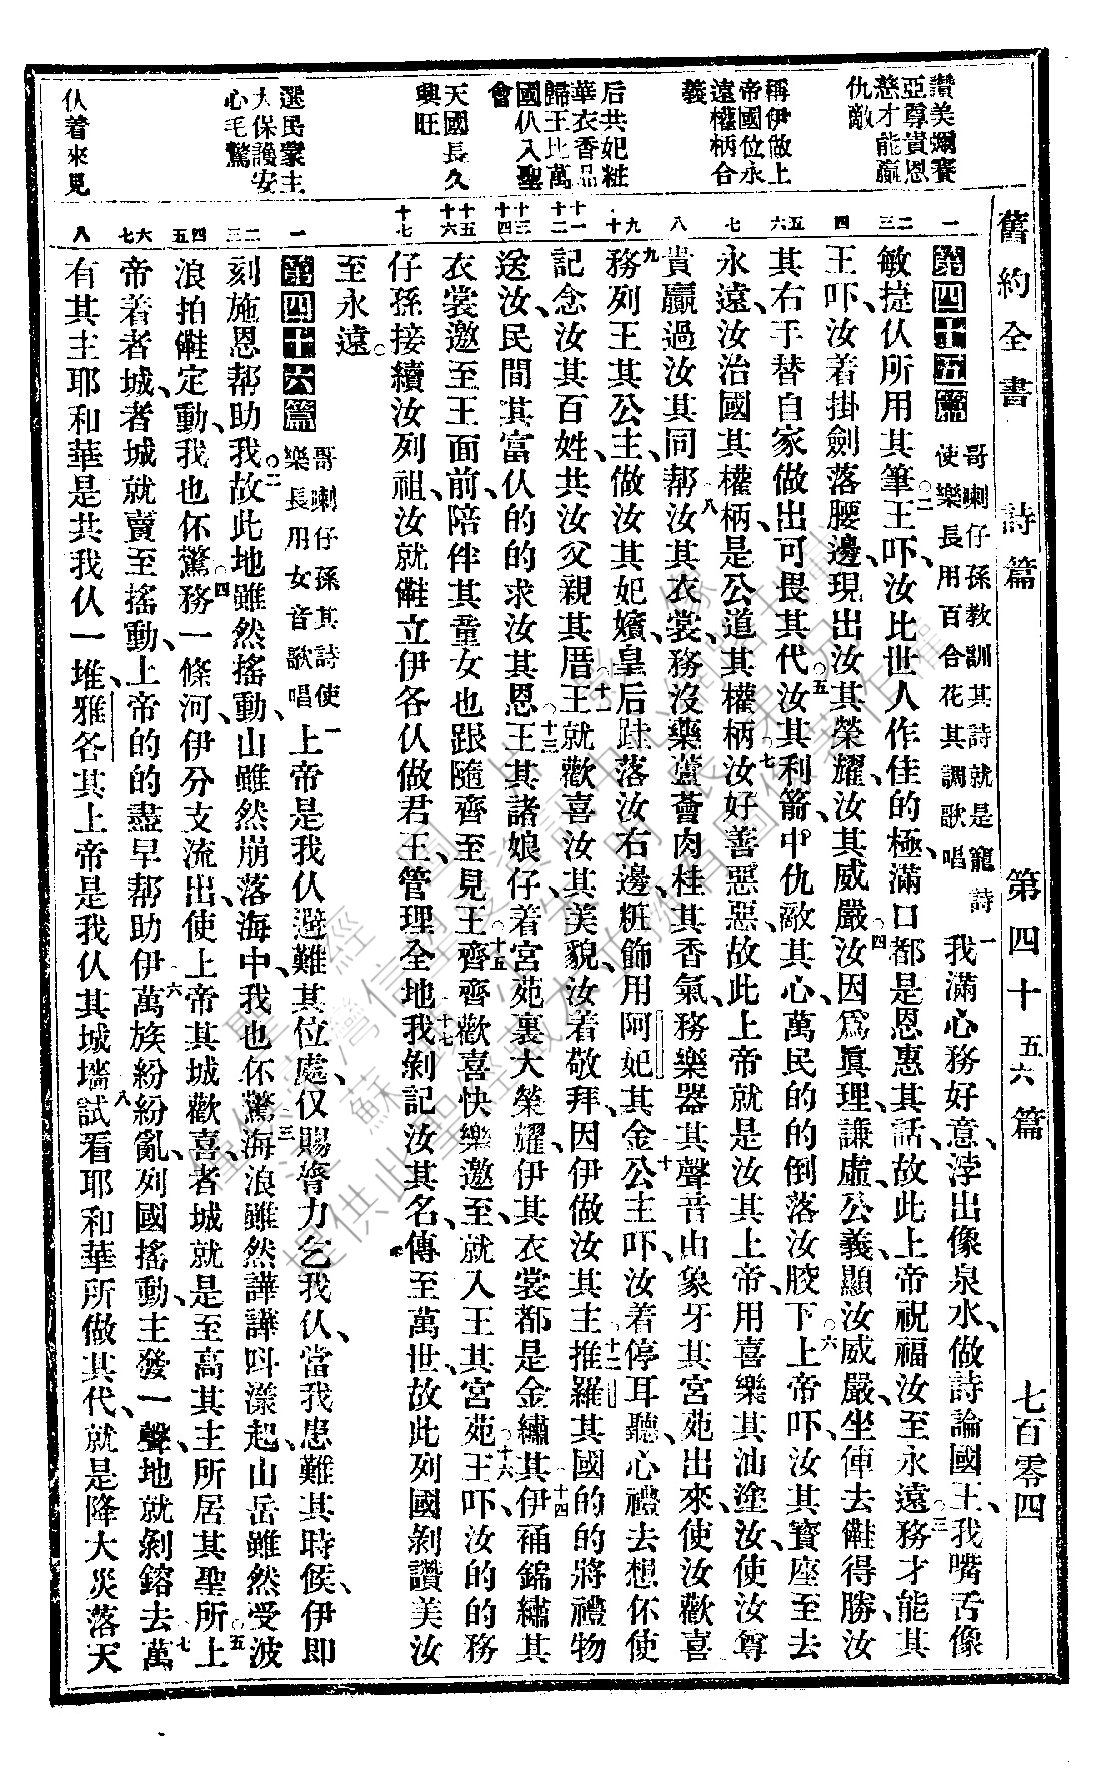 舊約全書　詩篇　第四十五六篇　七百零四
讚美彌賽
亞尊貴恩
慈才能贏
仇敵
稱伊做上
帝國位永
遠權柄合
義
后共妃粧
華衣香品
歸王比萬
國仈入聖
會
天國長久
興旺
選民蒙主
大保護安
心毛驚
仈着來覓
一
二三
四
五六
七
八
九十
十一十二
十三十四
十五十六
十七
一
二三
四五
六七
八
第四十五篇 哥喇仔孫教訓其詩就是寵詩使樂長用百合花其調歌唱 一我滿心務好意、浡出像泉水、做詩論國王、我嘴舌像
敏捷仈所用其筆、二王吓、汝比世人作佳的極、滿口都是恩惠其話、故此上帝祝福汝至永遠、三務才能其
王吓、汝着掛劍落腰邊、現出汝其榮耀、汝其威嚴、四汝因爲眞理、謙虛、公義、顯汝威嚴、坐俥去㒰得勝、汝
其右手替自家做出可畏其代、五汝其利箭中仇敵其心、萬民的的倒落汝骹下、六上帝吓、汝其寶座至去
永遠、汝治國其權柄、是公道其權柄、七汝好善惡惡、故此上帝就是汝其上帝、用喜樂其油塗汝、使汝尊
貴贏過汝其同幫、八汝其衣裳、務沒藥蘆薈肉桂其香氣、務樂器其聲音由象牙其宮苑出來、使汝歡喜
九務列王其公主、做汝其妃嬪、皇后跬落汝右邊、粧飾用阿妃其金、十公主吓、汝着停耳聽、心禮去想、伓使
記念汝其百姓、共汝父親其厝、十一王就歡喜汝其美貌、着敬拜、因伊做汝其主、十二推羅其國的的將禮物
送汝、民間其富仈的的求汝其恩、十三王其諸娘仔、着宮苑裏大榮耀、伊其衣裳都是金繡其、十四伊補錦繡其
衣裳邀至王面前、陪伴其童女也跟隨齊至見王、十五齊齊歡喜快樂邀至、就入王其宮苑、十六王吓、汝的的務
仔孫接續汝列祖、汝就㒰立伊各仈做君王、管理全地、十七我剝記汝其名、傳至萬世、故此列國剝讚美汝
至永遠。
第四十六篇 哥喇仔孫其詩使樂長用女音歌唱 一上帝是我仈避難其位處、仅賜膂力乞我仈、當我患難其時候、伊即
刻施恩幫助我、二故此地雖然搖動、山雖然崩落海中、我也伓驚、三海浪雖然譁譁呌漾起、山岳雖然受波
浪拍㒰定動、我也伓驚、四務一條河、伊分支流出、使上帝其城歡喜、者城就是至高其主所居其聖所、五上
帝着者城、者城就賣至搖動、上帝的的盡早幫助伊、六萬族紛紛亂、列國搖動、主發一聲、地就剝鎔去、七萬
有其主耶和華是共我仈一堆、雅各其上帝是我仈其城墻、八試看耶和華所做其代、就是降大災落天